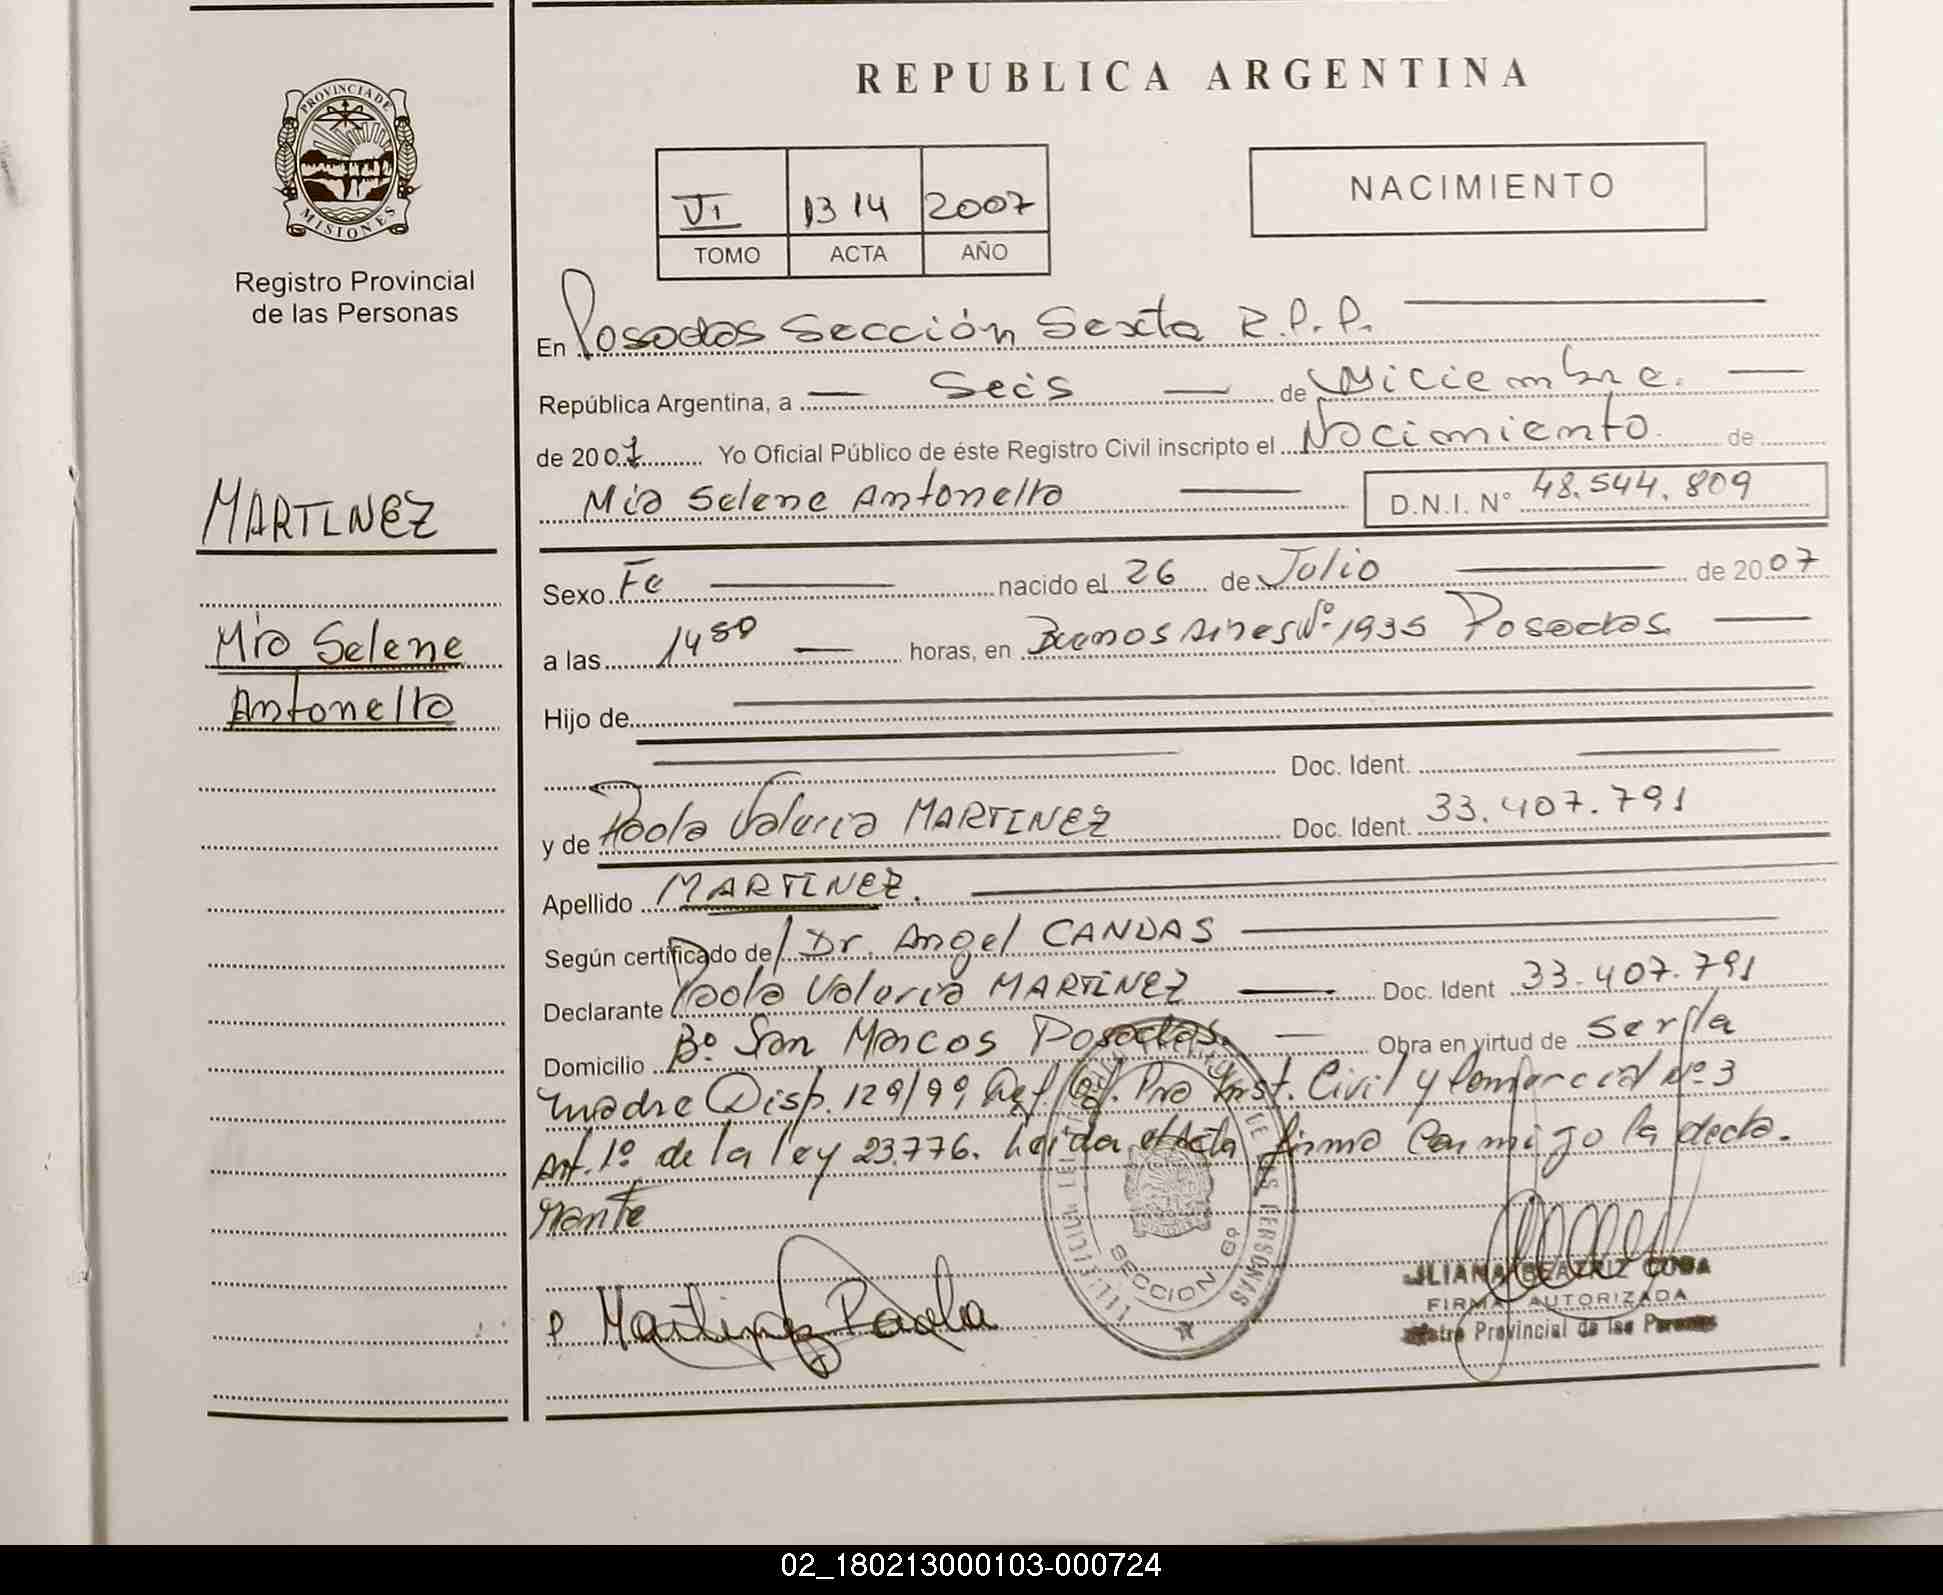 REPUBLICA ARGENTINA
PROVINCIA DE
MISIONES
Registro Provincial
de las Personas
VI 1314 2007
TOMO ACTA AÑO
NACIMIENTO
En Posadas Sección Sexta R.P.P.
República Argentina, a Seis de Diciembre.
de 2007 Yo Oficial Público de éste Registro Civil inscripto el Nacimiento. de
Mia Selene Antonella D.N.I. N° 48.544.809
MARTINEZ
Mia Selene
Antonella
Sexo Fe nacido el 26 de Julio de 2007
a las 14 50 horas, en Buenos Aires Nº 1935 Posadas
Hijo de
Doc. Ident.
y de Paola Valeria MARTINEZ Doc. Ident. 33.407.791
Apellido MARTINEZ.
Según certificado de Dr. Angel CANDAS
Declarante Paola Valeria MARTINEZ Doc. Ident 33.407.791
Domicilio Bº San Marcos Posadas. Obra en virtud de ser la
madre Disp. 129/99 Inst. Civil y Comercial Nº 3
Art. 1º de la ley 23.776. Leida el Acta firma Conmigo la decla-
rante
DE LAS PERSONAS
SECCION 6º
Martinez Paola
BEATRIZ CUBA
FIRMA AUTORIZADA
Provincial de las Personas
02_180213000103-000724